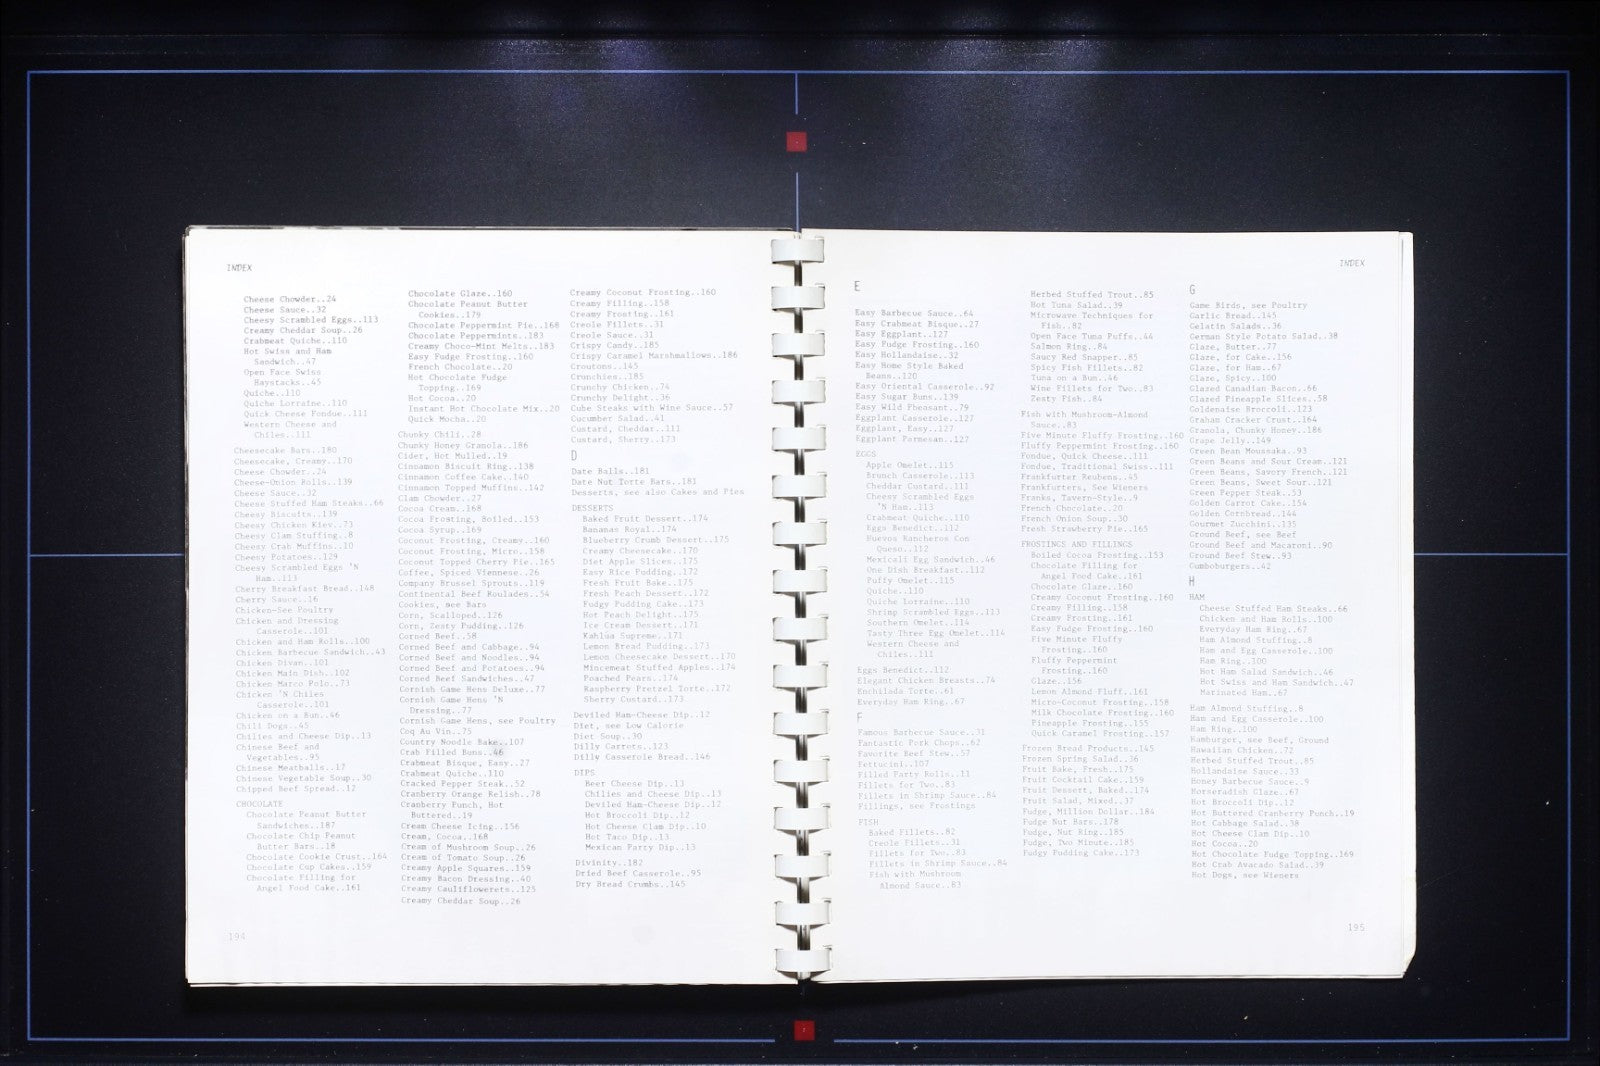 INDEX
Cheese Chowder..24
Cheese Sauce..32
Cheesy Scrambled Eggs..113
Creamy Cheddar Soup..26
Crabmeat Quiche..110
Hot Swiss and Ham
Sandwich..47
Open Face Swiss
Haystacks..45
Quiche..110
Quiche Lorraine..110
Quick Cheese Fondue..111
Western Cheese and
Chiles..111
Cheesecake Bars..180
Cheesecake, Creamy..170
Cheese Chowder..24
Cheese-Onion Rolls..139
Cheese Sauce..32
Cheese Stuffed Ham Steaks..66
Cheesy Biscuits..139
Cheesy Chicken Kiev..73
Cheesy Clam Stuffing..8
Cheesy Crab Muffins..10
Cheesy Potatoes..129
Cheesy Scrambled Eggs 'N
Ham..113
Cherry Breakfast Bread..148
Cherry Sauce..16
Chicken-See Poultry
Chicken and Dressing
Casserole..101
Chicken and Ham Rolls..100
Chicken Barbecue Sandwich..43
Chicken Divan..101
Chicken Main Dish..102
Chicken Marco Polo..73
Chicken 'N Chiles
Casserole..101
Chicken on a Bun..46
Chili Dogs..45
Chilies and Cheese Dip..13
Chinese Beef and
Vegetables..95
Chinese Meatballs..17
Chinese Vegetable Soup..30
Chipped Beef Spread..12
CHOCOLATE
Chocolate Peanut Butter
Sandwiches..187
Chocolate Chip Peanut
Butter Bars..18
Chocolate Cookie Crust..164
Chocolate Cup Cakes..159
Chocolate Filling for
Angel Food Cake..161
Chocolate Glaze..160
Chocolate Peanut Butter
Cookies..179
Chocolate Peppermint Pie..168
Chocolate Peppermints..183
Creamy Choco-Mint Melts..183
Easy Fudge Frosting..160
French Chocolate..20
Hot Chocolate Fudge
Topping..169
Hot Cocoa..20
Instant Hot Chocolate Mix..20
Quick Mocha..20
Chunky Chili..28
Chunky Honey Granola..186
Cider, Hot Mulled..19
Cinnamon Biscuit Ring..138
Cinnamon Coffee Cake..140
Cinnamon Topped Muffins..142
Clam Chowder..27
Cocoa Cream..168
Cocoa Frosting, Boiled..153
Cocoa Syrup..169
Coconut Frosting, Creamy..160
Coconut Frosting, Micro..158
Coconut Topped Cherry Pie..165
Coffee, Spiced Viennese..26
Company Brussel Sprouts..119
Continental Beef Roulades..54
Cookies, see Bars
Corn, Scalloped..126
Corn, Zesty Pudding..126
Corned Beef..58
Corned Beef and Cabbage..94
Corned Beef and Noodles..94
Corned Beef and Potatoes..94
Corned Beef Sandwiches..47
Cornish Game Hens Deluxe..77
Cornish Game Hens 'N
Dressing..77
Cornish Game Hens, see Poultry
Coq Au Vin..75
Country Noodle Bake..107
Crab Filled Buns..46
Crabmeat Bisque, Easy..27
Crabmeat Quiche..110
Cracked Pepper Steak..52
Cranberry Orange Relish..78
Cranberry Punch, Hot
Buttered..19
Cream Cheese Icing..156
Cream, Cocoa..168
Cream of Mushroom Soup..26
Cream of Tomato Soup..26
Creamy Apple Squares..159
Creamy Bacon Dressing..40
Creamy Cauliflowerets..125
Creamy Cheddar Soup..26
Creamy Coconut Frosting..160
Creamy Filling..158
Creamy Frosting..161
Creole Fillets..31
Creole Sauce..31
Crispy Candy..185
Crispy Caramel Marshmallows..186
Croutons..145
Crunchies..185
Crunchy Chicken..74
Crunchy Delight..36
Cube Steaks with Wine Sauce..57
Cucumber Salad..41
Custard, Cheddar..111
Custard, Sherry..173
D
Date Balls..181
Date Nut Torte Bars..181
Desserts, see also Cakes and Pies
DESSERTS
Baked Fruit Dessert..174
Bananas Royal..174
Blueberry Crumb Dessert..175
Creamy Cheesecake..170
Diet Apple Slices..175
Easy Rice Pudding..172
Fresh Fruit Bake..175
Fresh Peach Dessert..172
Fudgy Pudding Cake..173
Hot Peach Delight..175
Ice Cream Dessert..171
Kahlua Supreme..171
Lemon Bread Pudding..173
Lemon Cheesecake Dessert..170
Mincemeat Stuffed Apples..174
Poached Pears..174
Raspberry Pretzel Torte..172
Sherry Custard..173
Deviled Ham-Cheese Dip..12
Diet, see Low Calorie
Diet Soup..30
Dilly Carrots..123
Dilly Casserole Bread..146
DIPS
Beer Cheese Dip..13
Chilies and Cheese Dip..13
Deviled Ham-Cheese Dip..12
Hot Broccoli Dip..12
Hot Cheese Clam Dip..10
Hot Taco Dip..13
Mexican Party Dip..13
Divinity..182
Dried Beef Casserole..95
Dry Bread Crumbs..145
194
INDEX
E
Easy Barbecue Sauce..64
Easy Crabmeat Bisque..27
Easy Eggplant..127
Easy Fudge Frosting..160
Easy Hollandaise..32
Easy Home Style Baked
Beans..120
Easy Oriental Casserole..92
Easy Sugar Buns..139
Easy Wild Pheasant..79
Eggplant Casserole..127
Eggplant, Easy..127
Eggplant Parmesan..127
EGGS
Apple Omelet..115
Brunch Casserole..113
Cheddar Custard..111
Cheesy Scrambled Eggs
'N Ham..113
Crabmeat Quiche..110
Eggs Benedict..112
Huevos Rancheros Con
Queso..112
Mexicali Egg Sandwich..46
One Dish Breakfast..112
Puffy Omelet..115
Quiche..110
Quiche Lorraine..110
Shrimp Scrambled Eggs..123
Southern Omelet..114
Tasty Three Egg Omelet..114
Western Cheese and
Chiles..111
Eggs Benedict..112
Elegant Chicken Breasts..74
Enchilada Torte..61
Everyday Ham Ring..67
F
Famous Barbecue Sauce..31
Fantastic Pork Chops..62
Favorite Beef Stew..57
Fettucini..107
Filled Party Rolls..11
Fillets for Two..83
Fillets in Shrimp Sauce..84
Fillings, see Frostings
FISH
Baked Fillets..82
Creole Fillets..31
Fillets for Two..83
Fillets in Shrimp Sauce..84
Fish with Mushroom
Almond Sauce..83
Herbed Stuffed Trout..85
Hot Tuna Salad..39
Microwave Techniques for
Fish..82
Open Face Tuna Puffs..44
Salmon Ring..84
Saucy Red Snapper..85
Spicy Fish Fillets..82
Tuna on a Bun..46
Wine Fillets for Two..83
Zesty Fish..84
Fish with Mushroom-Almond
Sauce..83
Five Minute Fluffy Frosting..160
Fluffy Peppermint Frosting..160
Fondue, Quick Cheese..111
Fondue, Traditional Swiss..111
Frankfurter Reubens..45
Frankfurters, See Wieners
Franks, Tavern-Style..9
French Chocolate..20
French Onion Soup..30
Fresh Strawberry Pie..165
FROSTINGS AND FILLINGS
Boiled Cocoa Frosting..153
Chocolate Filling for
Angel Food Cake..161
Chocolate Glaze..160
Creamy Coconut Frosting..160
Creamy Filling..158
Creamy Frosting..161
Easy Fudge Frosting..160
Five Minute Fluffy
Frosting..160
Fluffy Peppermint
Frosting..160
Glaze..156
Lemon Almond Fluff..161
Micro-Coconut Frosting..158
Milk Chocolate Frosting..160
Pineapple Frosting..155
Quick Caramel Frosting..157
Frozen Bread Products..145
Frozen Spring Salad..36
Fruit Bake, Fresh..175
Fruit Cocktail Cake..159
Fruit Dessert, Baked..174
Fruit Salad, Mixed..37
Fudge, Million Dollar..184
Fudge Nut Bars..178
Fudge, Nut Ring..185
Fudge, Two Minute..185
Fudgy Pudding Cake..173
G
Game Birds, see Poultry
Garlic Bread..145
Gelatin Salads..36
German Style Potato Salad..38
Glaze, Butter..77
Glaze, for Cake..156
Glaze, for Ham..67
Glaze, Spicy..100
Glazed Canadian Bacon..66
Glazed Pineapple Slices..58
Goldenaise Broccoli..123
Graham Cracker Crust..164
Granola, Chunky Honey..186
Grape Jelly..149
Green Bean Moussaka..93
Green Beans and Sour Cream..121
Green Beans, Savory French..121
Green Beans, Sweet Sour..121
Green Pepper Steak..53
Golden Carrot Cake..154
Golden Cornbread..144
Gourmet Zucchini..135
Ground Beef, see Beef
Ground Beef and Macaroni..90
Ground Beef Stew..93
Gumboburgers..42
H
HAM
Cheese Stuffed Ham Steaks..66
Chicken and Ham Rolls..100
Everyday Ham Ring..67
Ham Almond Stuffing..8
Ham and Egg Casserole..100
Ham Ring..100
Hot Ham Salad Sandwich..46
Hot Swiss and Ham Sandwich..47
Marinated Ham..67
Ham Almond Stuffing..8
Ham and Egg Casserole..100
Ham Ring..100
Hamburger, see Beef, Ground
Hawaiian Chicken..72
Herbed Stuffed Trout..85
Hollandaise Sauce..33
Honey Barbecue Sauce..9
Horseradish Glaze..67
Hot Broccoli Dip..12
Hot Buttered Cranberry Punch..19
Hot Cabbage Salad..38
Hot Cheese Clam Dip..10
Hot Cocoa..20
Hot Chocolate Fudge Topping..169
Hot Crab Avacado Salad..39
Hot Dogs, see Wieners
195